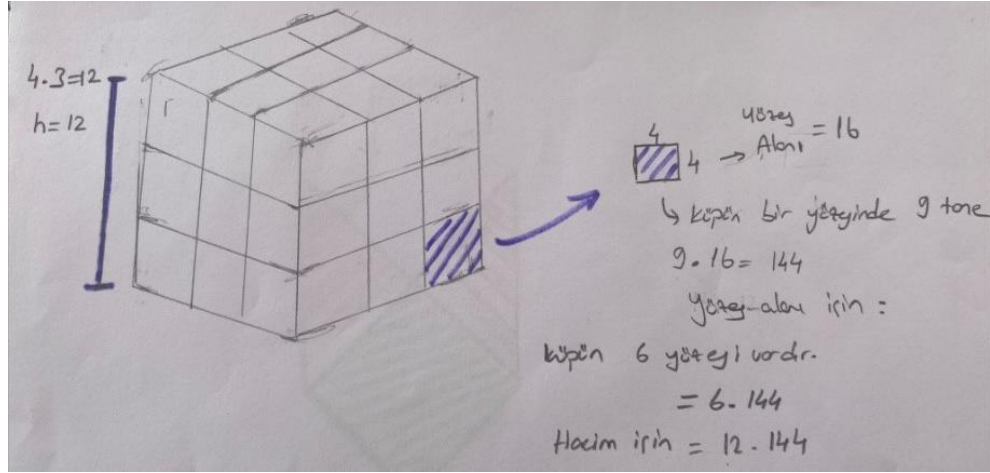 4.3=12
h=12
4
4
→ yüzey Alanı = 16
↳ küpün bir yüzeyinde 9 tane
9.16= 144
Yüzey alanı için :
küpün 6 yüzeyi vardır.
= 6.144
Hacim için = 12.144